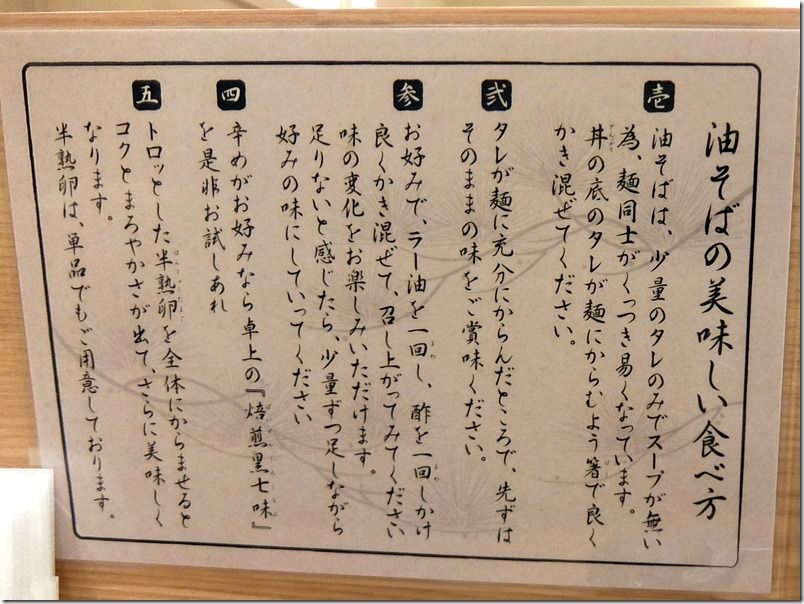 油そばの美味しい食べ方
壱
油そばは、少量のタレのみでスープが無い
為、麺同士がくっつき易くなっています。
丼の底のタレが麺にからむよう箸で良く
かき混ぜてください。
弐
タレが麺に充分にからんだところで、先ずは
そのままの味をご賞味ください。
参
お好みで、ラー油を一回し、酢を一回しかけ
良くかき混ぜて、召し上がってみてください
味の変化をお楽しみいただけます。
足りないと感じたら、少量ずつ足しながら
好みの味にしていってください
四
辛めがお好みなら卓上の『焙煎黒七味』
を是非お試しあれ
五
トロッとした半熟卵を全体にからませると
コクとまろやかさが出て、さらに美味しく
なります。
半熟卵は、単品でもご用意しております。